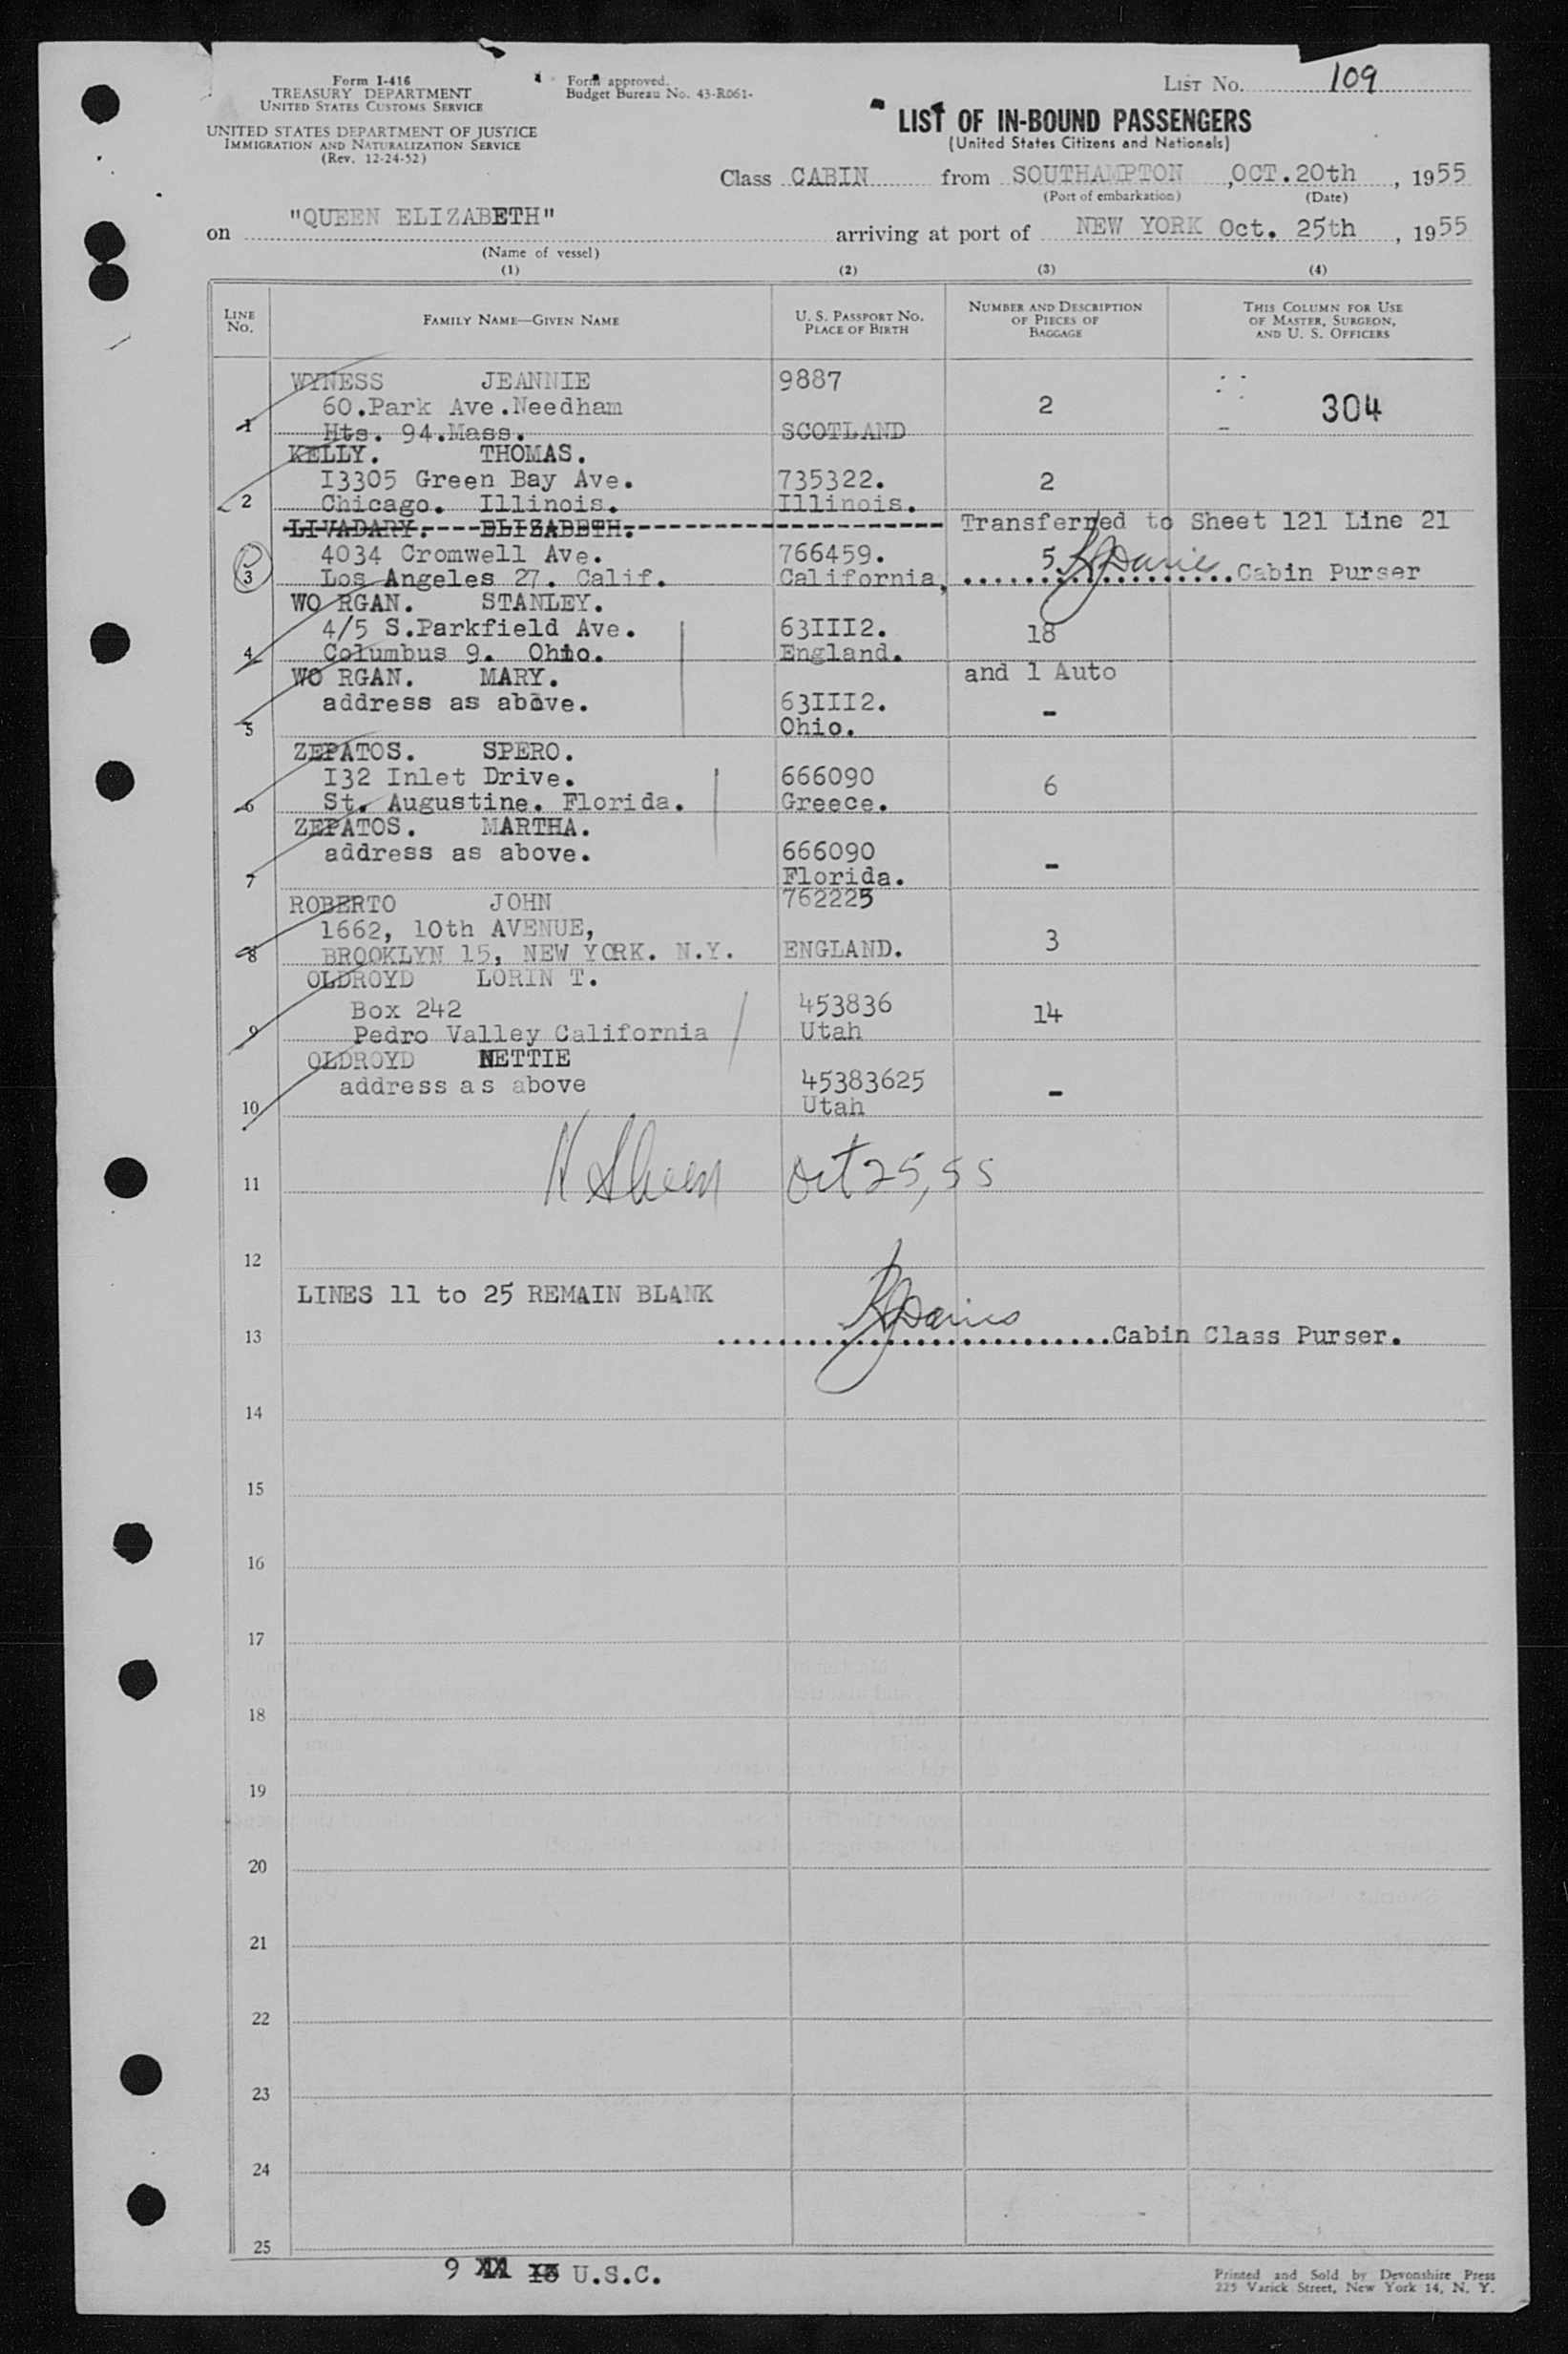 Form I-416
TREASURY DEPARTMENT
UNITED STATES CUSTOMS SERVICE
UNITED STATES DEPARTMENT OF JUSTICE
IMMIGRATION AND NATURALIZATION SERVICE
(Rev. 12-24-52)
Form approved.
Budget Bureau No. 43-R061-
LIST No. 109
LIST OF IN-BOUND PASSENGERS
(United States Citizens and Nationals)
Class CABIN from SOUTHAMPTON ,OCT.20th , 1955
(Port of embarkation) (Date)
on "QUEEN ELIZABETH" arriving at port of NEW YORK Oct. 25th , 1955
(Name of vessel)
(1) (2) (3) (4)
LINE No. FAMILY NAME—GIVEN NAME U. S. PASSPORT No. PLACE OF BIRTH NUMBER AND DESCRIPTION OF PIECES OF BAGGAGE THIS COLUMN FOR USE OF MASTER, SURGEON, AND U. S. OFFICERS
WYNESS JEANNIE 9887
60.Park Ave.Needham 2 304
1 Hts. 94.Mass. SCOTLAND
KELLY. THOMAS.
I3305 Green Bay Ave. 735322. 2
2 Chicago. Illinois. Illinois.
LIVADARY.----ELIZABETH. Transferred to Sheet 121 Line 21
4034 Cromwell Ave. 766459. 5
3 Los Angeles 27. Calif. California, Cabin Purser
WO RGAN. STANLEY.
4/5 S.Parkfield Ave. 63III2. 18
4 Columbus 9. Ohio. England.
WO RGAN. MARY. and 1 Auto
address as above. 63III2. -
5 Ohio.
ZEPATOS. SPERO.
I32 Inlet Drive. 666090 6
6 St. Augustine. Florida. Greece.
ZEPATOS. MARTHA.
address as above. 666090 -
7 Florida.
ROBERTO JOHN 762225
1662, 10th AVENUE, 3
8 BROOKLYN 15, NEW YORK. N.Y. ENGLAND.
OLDROYD LORIN T.
Box 242 453836 14
9 Pedro Valley California Utah
OLDROYD NETTIE
address as above 45383625 -
10 Utah
11 Oct 25, 55
12
LINES 11 to 25 REMAIN BLANK
13 Cabin Class Purser.
14
15
16
17
18
19
20
21
22
23
24
25
9 U.S.C.
Printed and Sold by Devonshire Press
225 Varick Street, New York 14, N. Y.